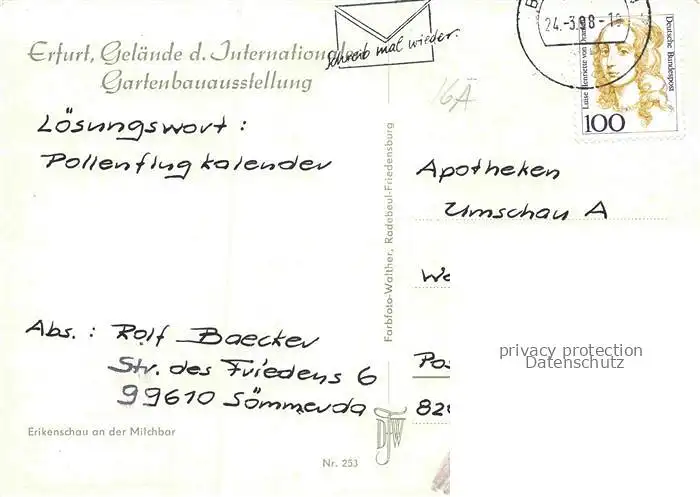 Erfurt, Gelände d. Internationalen
Gartenbauausstellung
Schreib mal wieder.
24.-3.98-18
Luise Henriette von
Deutsche Bundespost
100
16Ä
Lösungswort:
Pollenflugkalender
Apotheken
Umschau A
We
Pos
82
Farbfoto-Walther, Radebeul-Friedensburg
Abs.: Rolf Baecker
Str. des Friedens 6
99610 Sömmerda
Erikenschau an der Milchbar
Nr. 253
DFW
privacy protection
Datenschutz